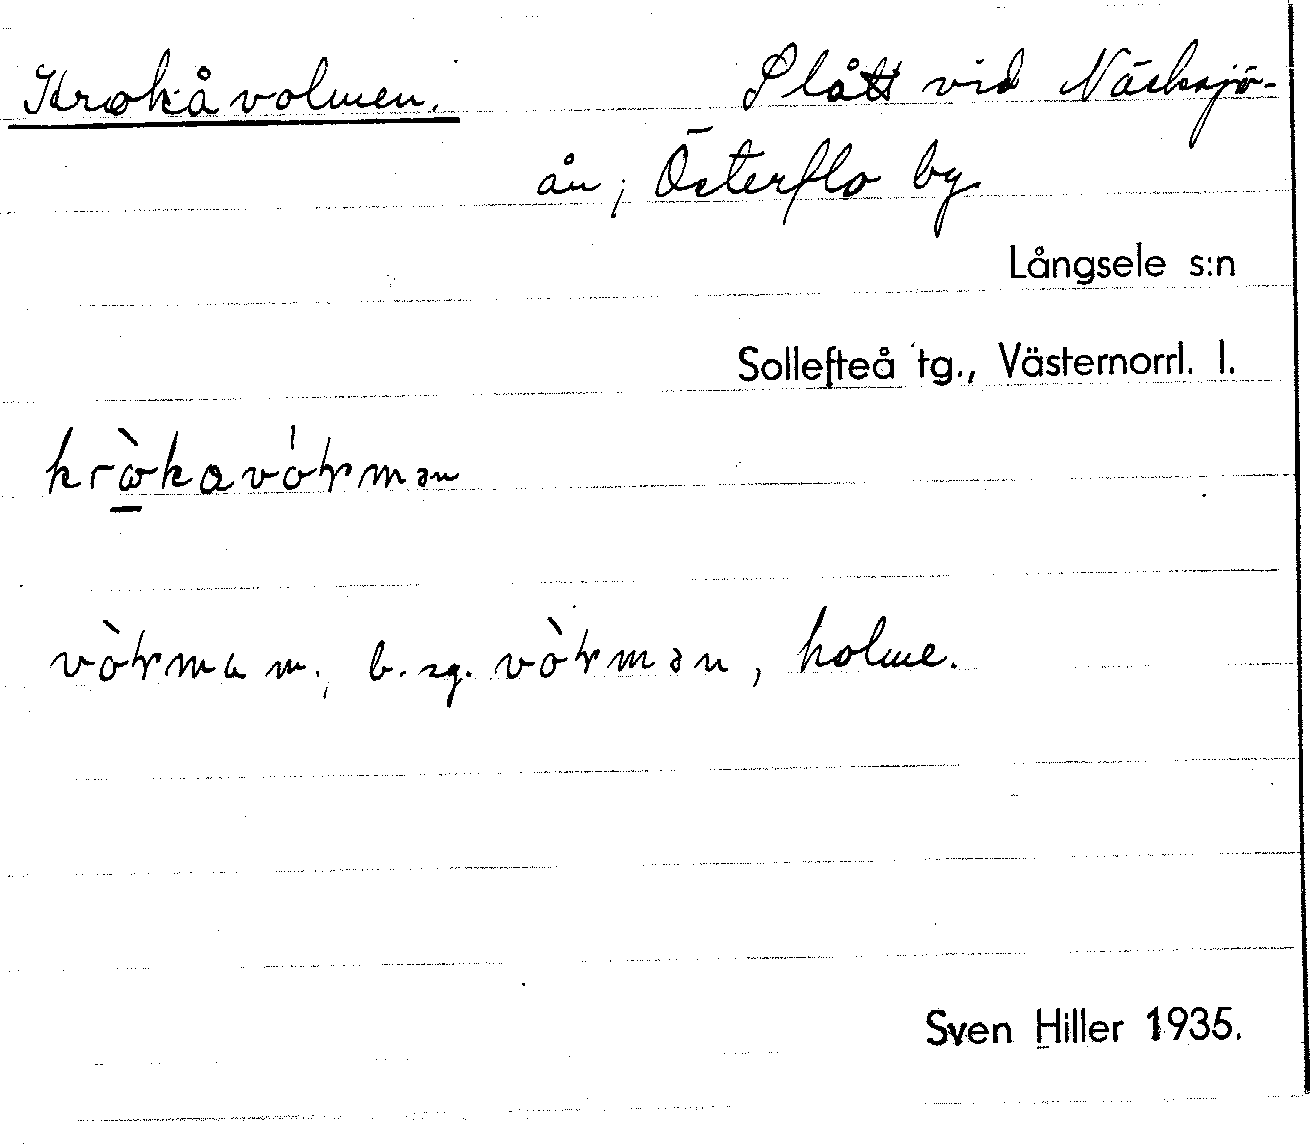 Krokåvolmen. Slått vid Näcksjö-
ån, Österflo by
Långsele s:n
Sollefteå tg., Västernorrl. l.
vòɽma m., b. sg. vòɽmən, holme.
Sven Hiller 1935.